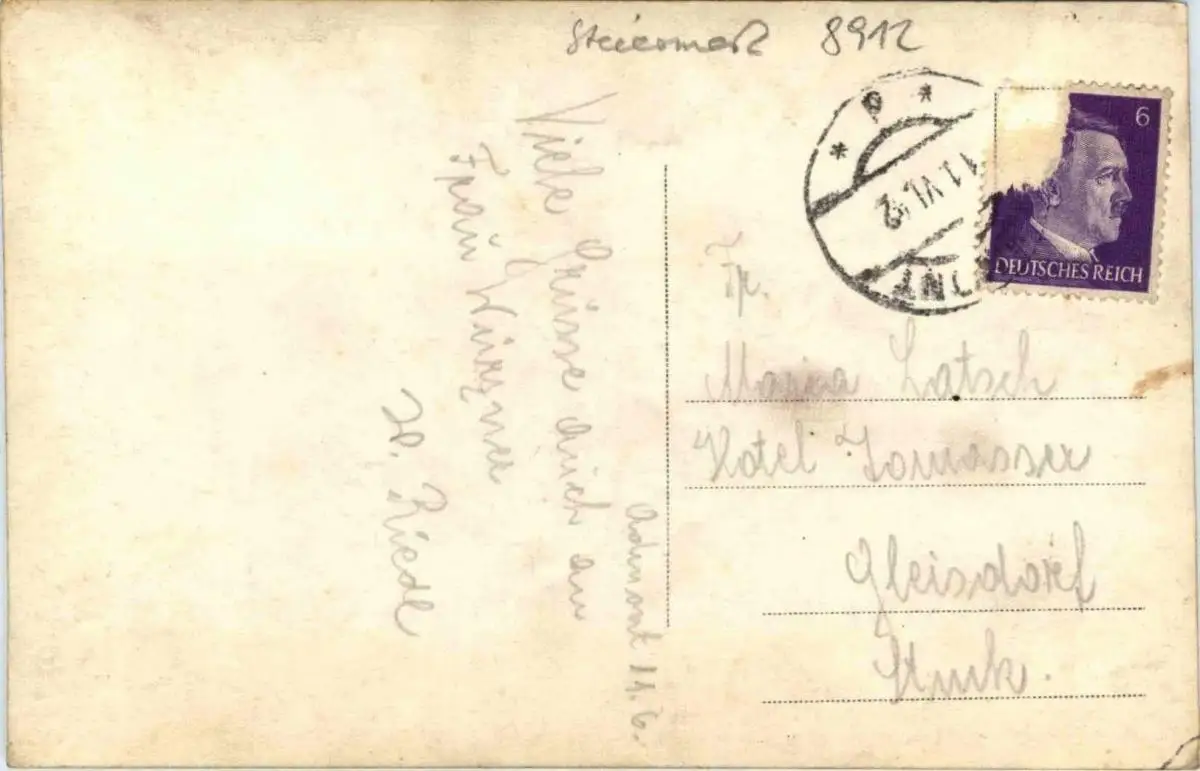 Steiermark 8912
* d *
11.VI.42
6
DEUTSCHES REICH
Admont 11.6.
Viele Grüsse auch an
Frau Würzner
H. Riedl
Fr.
Maria Latsch
Hotel
Gleisdorf
Stmk.